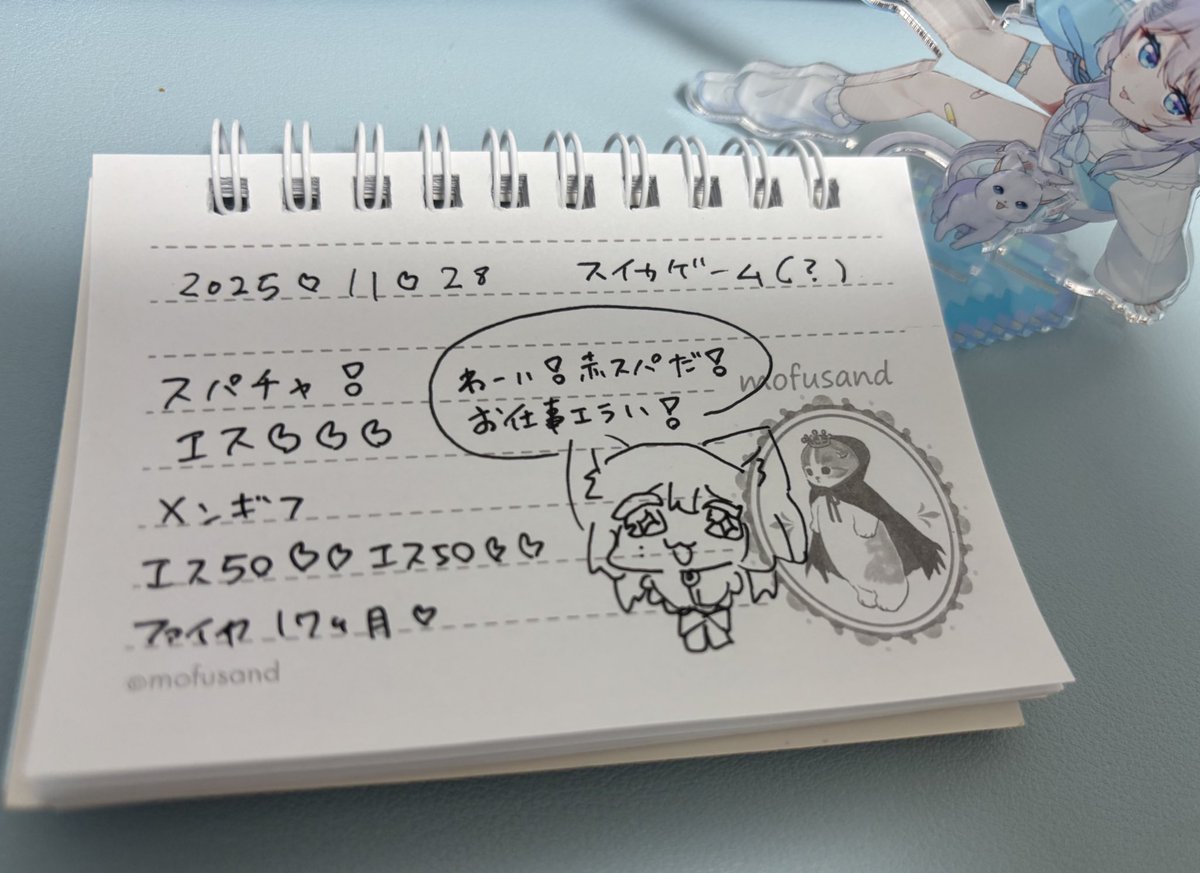 2025♡11♡28 スイカゲーム(?)
スパチャ!
エス♡♡♡
わーい!赤スパだ!
お仕事エライ!
mofusand
メンギフ
エス50♡♡エス50♡♡
ファイヤ 17ヶ月♡
©mofusand